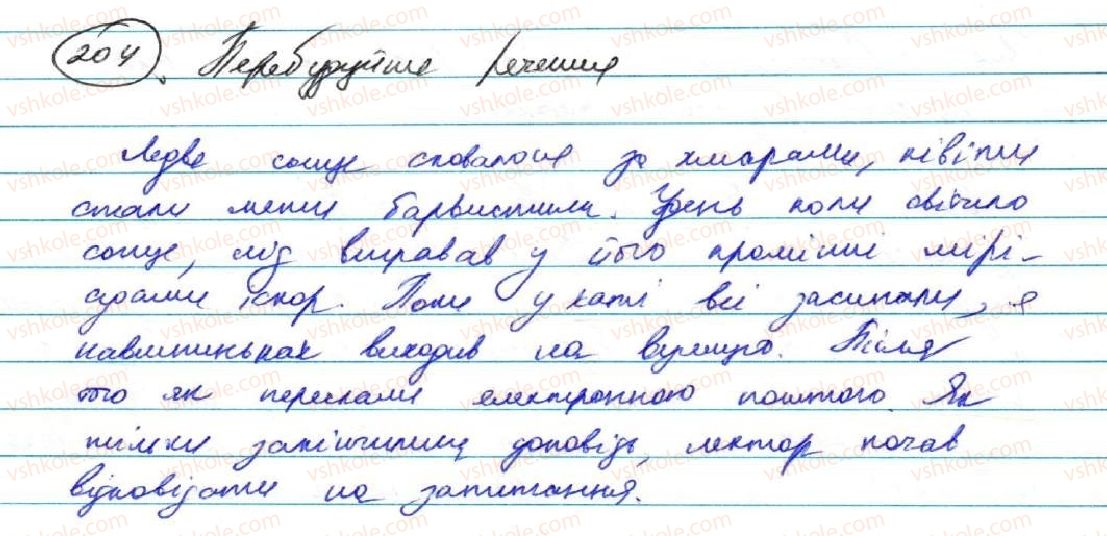 204. Перебудуйте речення
Ледве сонце сховалося за хмарами, квіти
стали менш барвистими. Удень коли світило
сонце, лід вигравав у його промінні мірі-
адами іскор. Коли у хаті всі засинали, я
навшпиньках виходив на вулицю. Після
того як переслали електронною поштою. Як
тільки закінчили доповідь, лектор почав
відповідати на запитання.